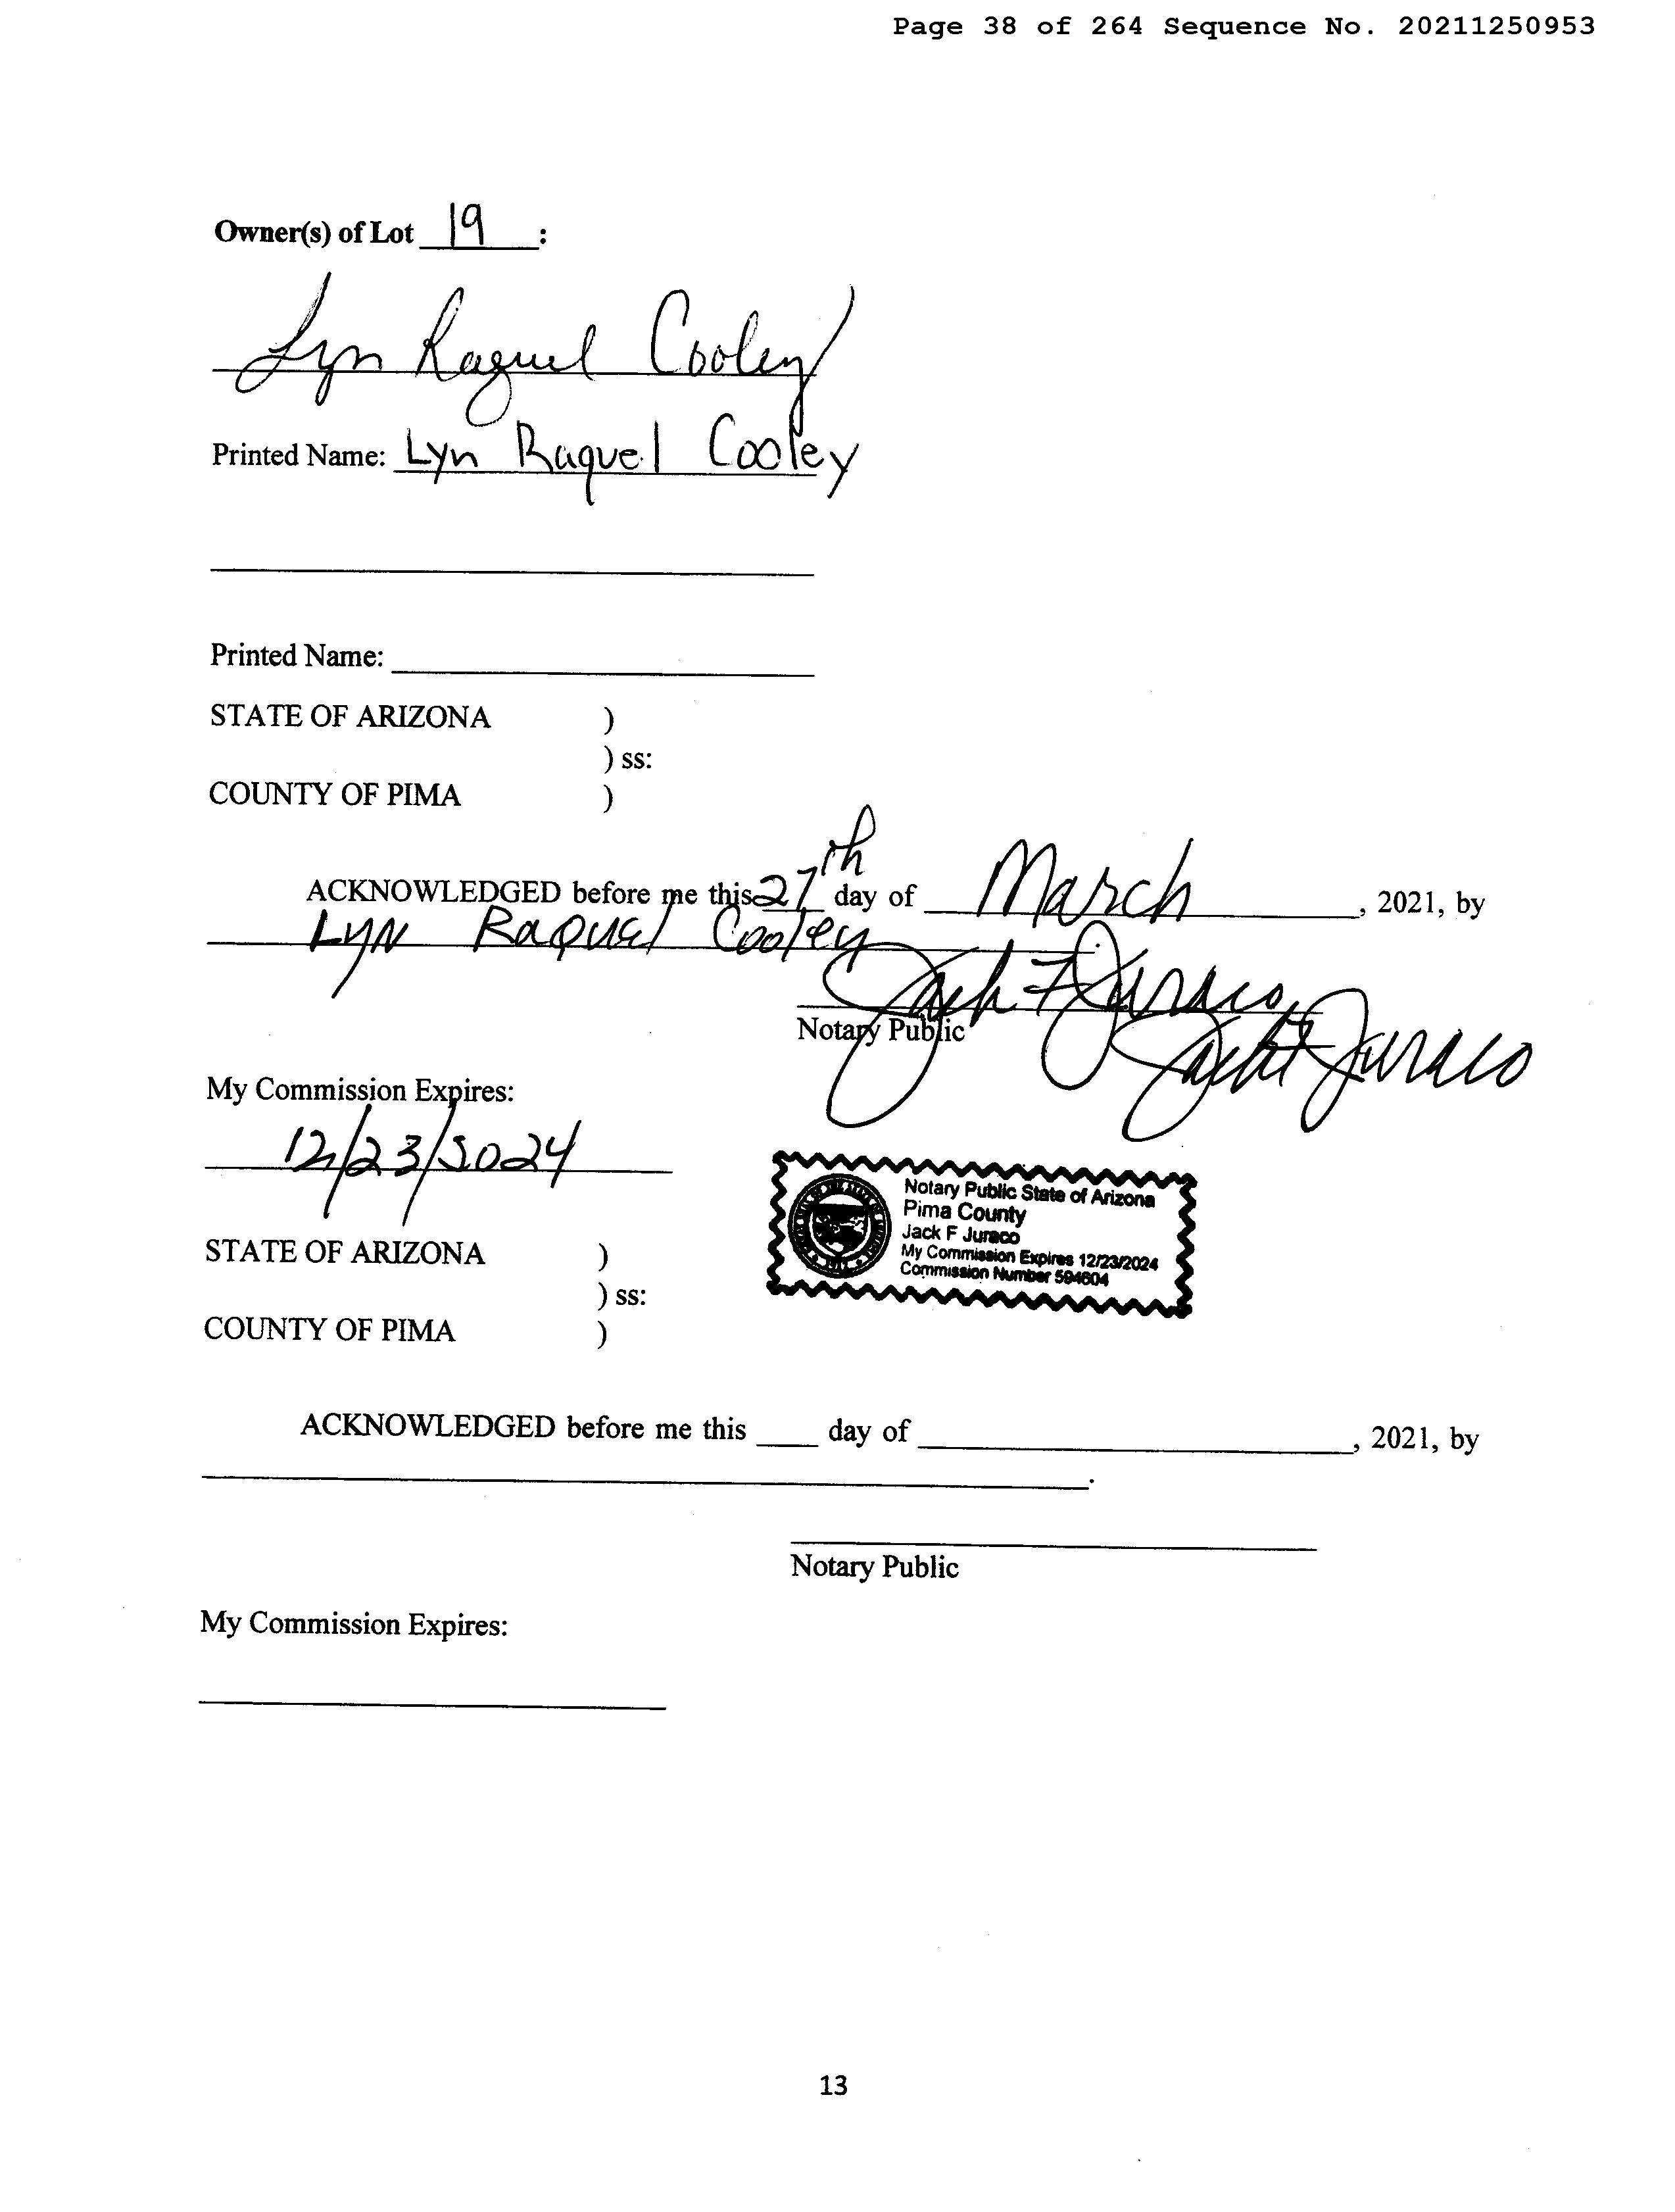 Page 38 of 264 Sequence No. 20211250953
Owner(s) of Lot 19 :
Lyn Raquel Cooley
Printed Name: Lyn Raquel Cooley
Printed Name:
STATE OF ARIZONA )
) ss:
COUNTY OF PIMA )
ACKNOWLEDGED before me this 27th day of March, 2021, by
Lyn Raquel Cooley
Jack F Juraco
Notary Public
Jack F Juraco
My Commission Expires:
12/23/2024
Notary Public State of Arizona
Pima County
Jack F Juraco
My Commission Expires 12/23/2024
Commission Number 594604
STATE OF ARIZONA )
) ss:
COUNTY OF PIMA )
ACKNOWLEDGED before me this ____ day of ____, 2021, by
.
Notary Public
My Commission Expires:
13